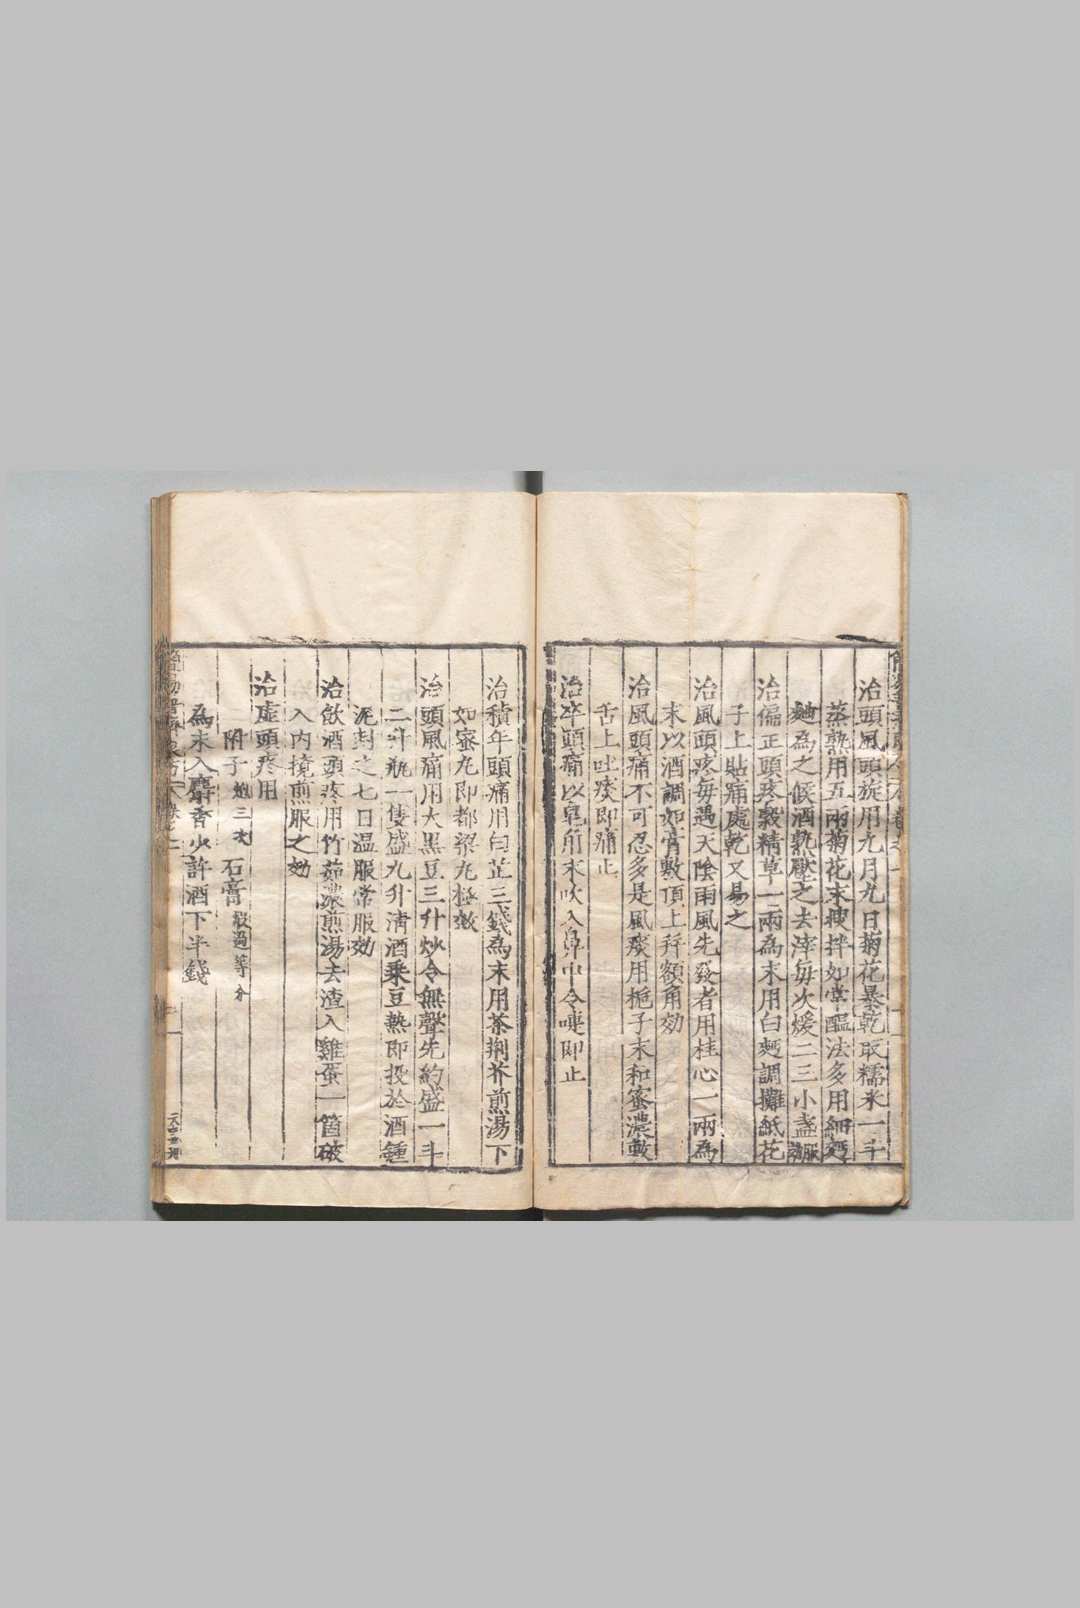 治頭風頭旋用九月九日菊花暴乾取糯米一斗
蒸熟用五兩菊花末搜拌如常醞法多用細麪
麯為之候酒熟壓之去滓每次煖二三小盞服
治偏正頭疼穀精草一兩為末用白麪調攤紙花
子上貼痛處乾又易之
治風頭疼每遇天陰雨風先發者用桂心一兩為
末以酒調如膏敷頂上并額角効
治風頭痛不可忍多是風痰用梔子末和蜜濃敷
舌上吐痰即痛止
治卒頭痛以皂角末吹入鼻中令嚏即止
治積年頭痛用白芷三錢為末用茶荊芥煎湯下
如蜜丸即都梁丸極效
治頭風痛用大黑豆三升炒令無聲先約盛一斗
二升瓶一隻盛九升清酒乘豆熱即投於酒鍾
泥封之七日温服常服効
治飲酒頭疼用竹茹濃煎湯去渣入雞蛋一箇破
入内攪煎服之効
治虛頭疼用
附子炮三次 石膏煅過等分
為末入麝香少許酒下半錢